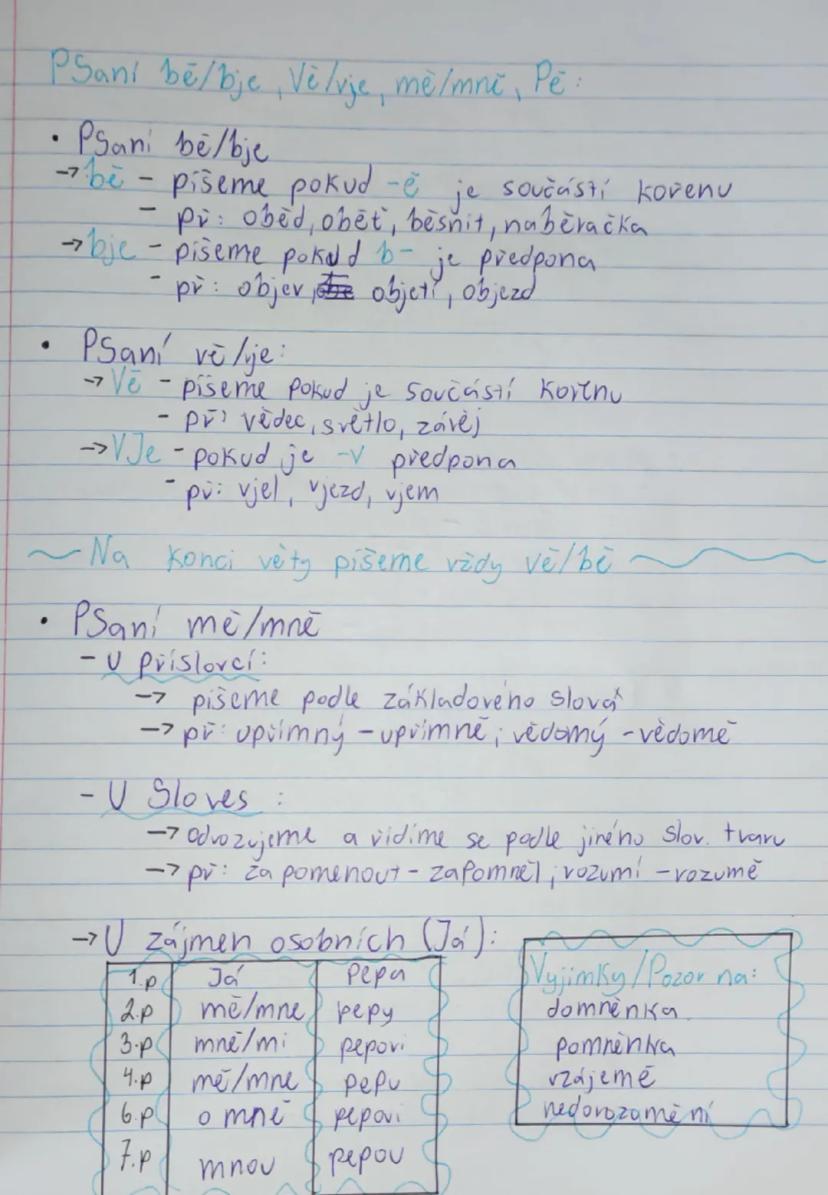 Psaní bě/bje, Vě/vje, mě/mně, Pě:
• Psaní bě/bje
→ bě - píšeme pokud -ě je součástí kořenu
- př: oběd, oběť, běsnit, naběračka
→ bje - píšeme pokud b- je předpona
- př: objev, objetí, objezd
• Psaní vě/vje:
→ Vě - píšeme pokud je součástí kořenu
- př: vědec, světlo, závěj
→ VJe - pokud je -v předpona
- př: vjel, vjezd, vjem
~ Na konci věty píšeme vždy vě/bě ~
• Psaní mě/mně
- U příslovcí:
→ píšeme podle základového slova
→ př: upřímný - upřímně, vědomý - vědomě
- U Sloves:
→ odvozujeme a řídíme se podle jiného slov. tvaru
→ př: zapomenout - zapomněl, rozumí - rozumě
→ U zájmen osobních (Já):
1.p Já Pepa
2.p mě/mne pepy
3.p mně/mi pepovi
4.p mě/mne pepu
6.p o mně pepovi
7.p mnou pepou
Vyjimky/Pozor na:
domněnka
pomněnka
vzájemě
nedorozamění